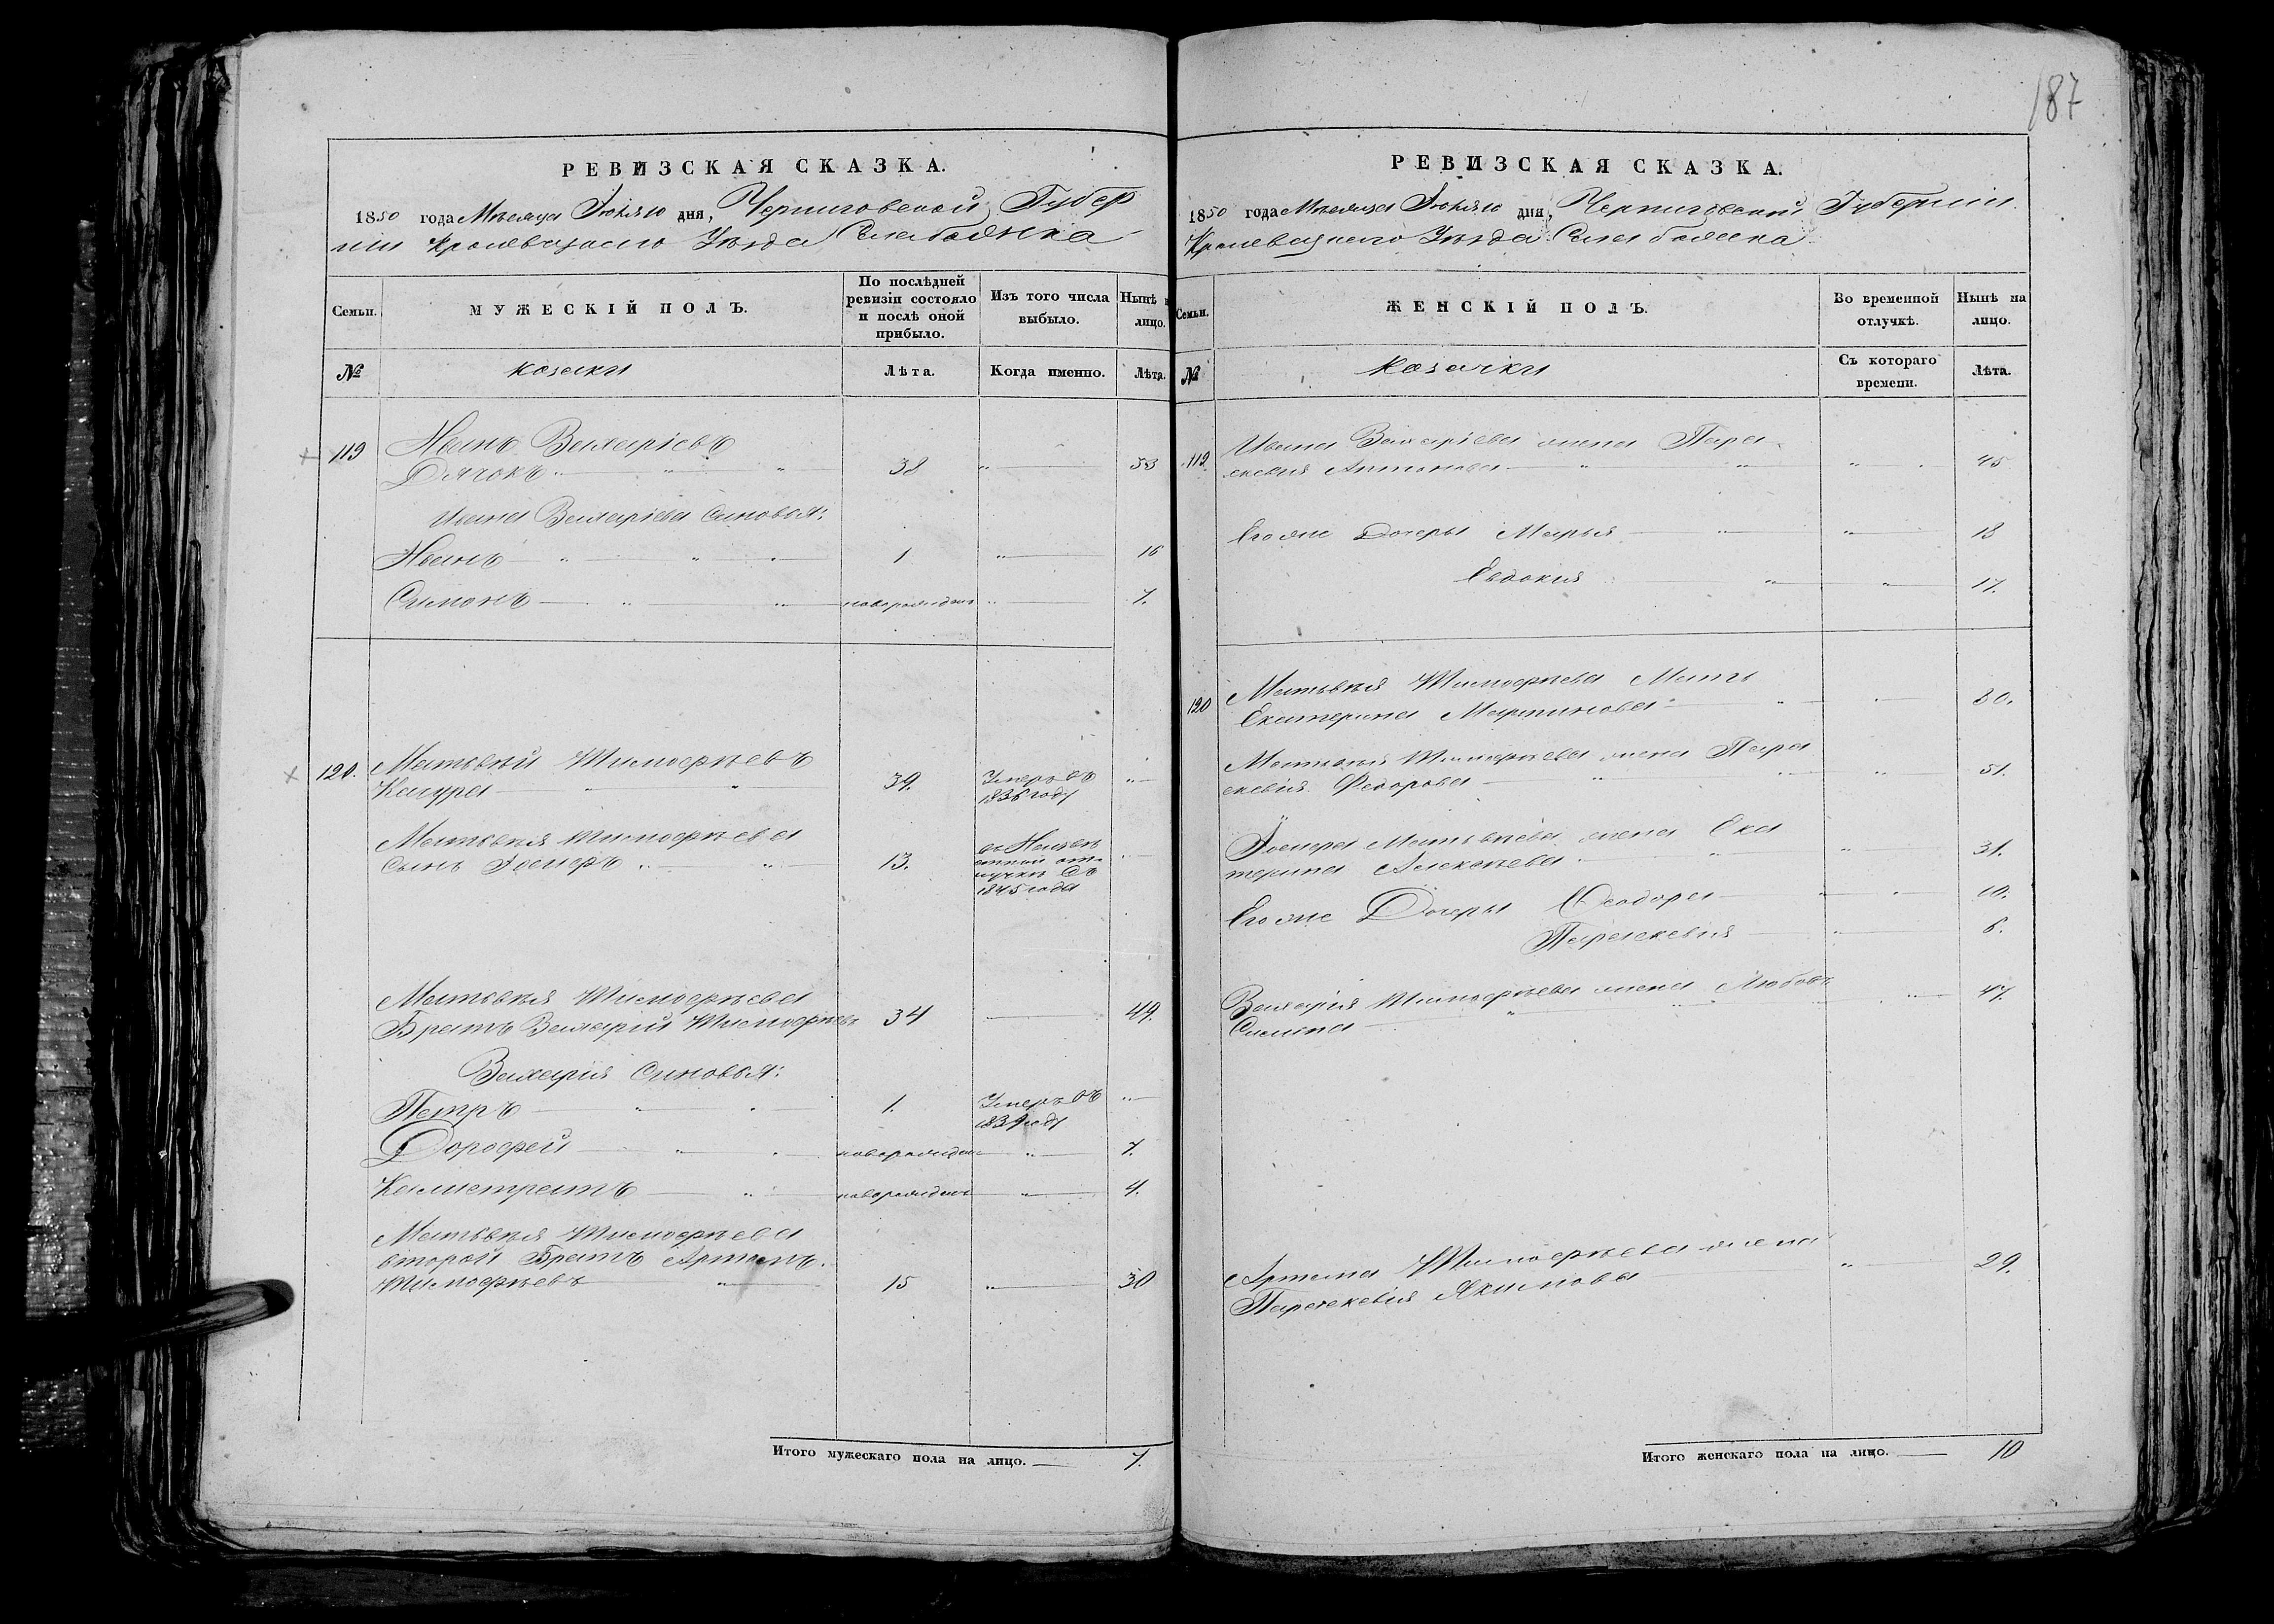 187
РЕВИЗСКАЯ СКАЗКА.
1850 года Месяца Июля 10 дня, Черниговской Губер
ніи Кролевецкаго Уезда Села
Семьи.
МУЖЕСКІЙ ПОЛЪ.
По послѣдней ревизіи состояло и послѣ оной прибыло.
Изъ того числа выбыло.
Нынѣ лицо.
№
козаки
Лѣта.
Когда именно.
Лѣта.
119 Иванъ Захаріевъ
Дячокъ 38 53
Ивана Захаріева Синовья:
Иванъ 1 16
Симонъ новорожден 7.
120. Матвѣй Тимофѣевъ
Кацура 39. Умеръ въ
1836 году
Матвѣя Тимофѣева
Сынъ 13. въ
отлучкѣ Съ
1845 года
Матвѣя Тимофѣева
Братъ Захарій Тимофѣевъ 34 49.
Захарія Синовья:
Петръ 1. Умеръ въ
1839 году
Дорофей новорожден 7.
Калистратъ новорожден 4.
Матвѣя Тимофѣева
второй Братъ Артемъ
Тимофѣевъ 15 30
Итого мужескаго пола на лицо. 7.
РЕВИЗСКАЯ СКАЗКА.
1850 года Месяца Июля 10 дня, Черниговской Губерніи
Кролевецкаго Уезда Села
Семьи.
ЖЕНСКІЙ ПОЛЪ.
Во временной отлучкѣ.
Нынѣ на лицо.
№
козачки
Съ котораго времени.
Лѣта.
119. Ивана Захаріева жена Пара
скевія Антонова 45
Егоже Дочеры Марья 18
Евдокия 17.
120 Матвѣя Тимофѣева Мать
Екатерина Мартинова 80.
Матвѣя Тимофѣева жена Пара
скевія Федорова 51.
Матвѣева жена Ека
терина Алексѣева 31.
Егоже Дочеры Феодора 10.
Параскевия 6.
Захарія Тимофѣева жена Любовь 47.
Артема Тимофѣева жена 29.
Параскевія Якимова
Итого женскаго пола на лицо. 10